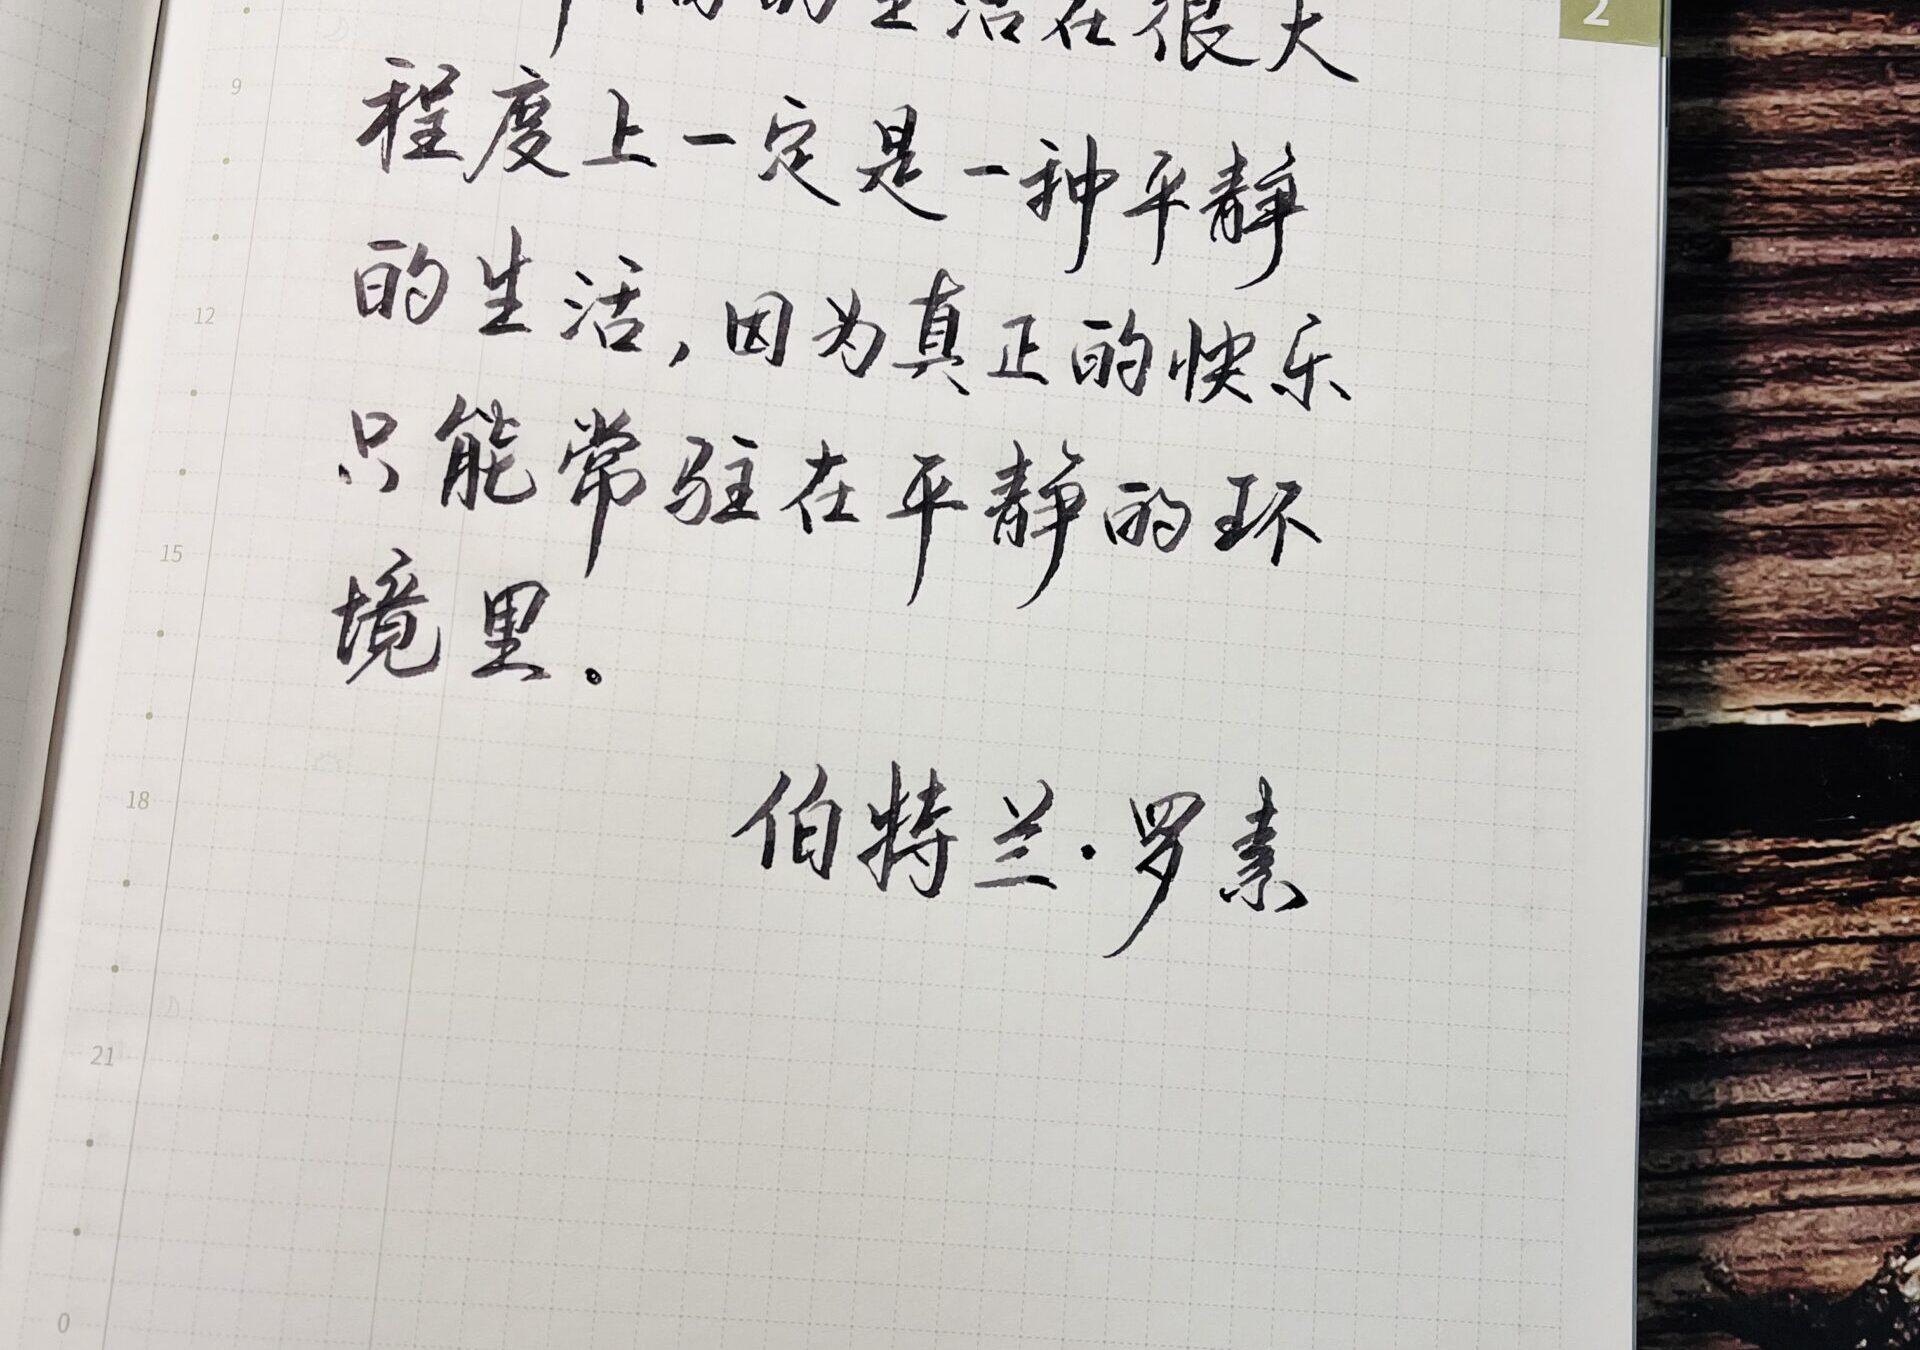 的生活在很大
程度上一定是一种平静
的生活，因为真正的快乐
只能常驻在平静的环
境里。
伯特兰·罗素
2
9
12
15
18
21
0